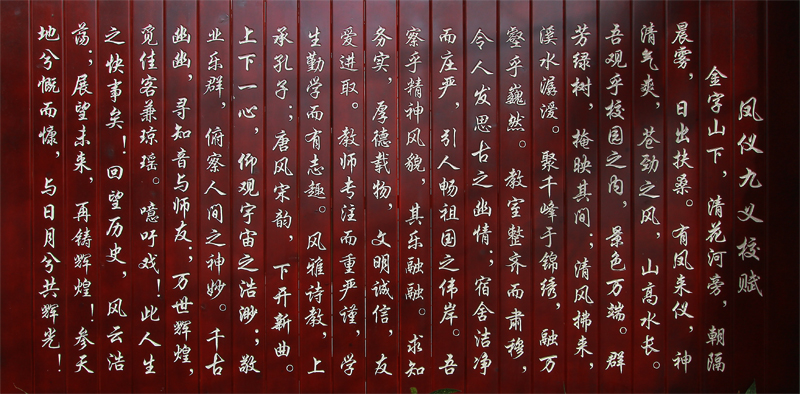 凤仪九义校赋
金字山下，清花河旁，朝隔
晨雾，日出扶桑。有凤来仪，神
清气爽，苍劲之风，山高水长。
吾观乎校园之内，景色万端。群
芳绿树，掩映其间；清风拂来，
溪水潺湲。聚千峰于锦绣，融万
壑乎巍然。教室整齐而肃穆，
令人发思古之幽情；宿舍洁净
而庄严，引人畅祖国之伟岸。吾
察乎精神风貌，其乐融融。求知
务实，厚德载物，文明诚信，友
爱进取。教师专注而重严谨，学
生勤学而有志趣。风雅诗教，上
承孔子；唐风宋韵，下开新曲。
上下一心，仰观宇宙之浩渺；敬
业乐群，俯察人间之神妙。千古
幽幽，寻知音与师友；万世辉煌，
觅佳客兼琼瑶。噫吁戏！此人生
之快事矣！回望历史，风云浩
荡；展望未来，再铸辉煌！参天
地兮慨而慷，与日月兮共辉光！